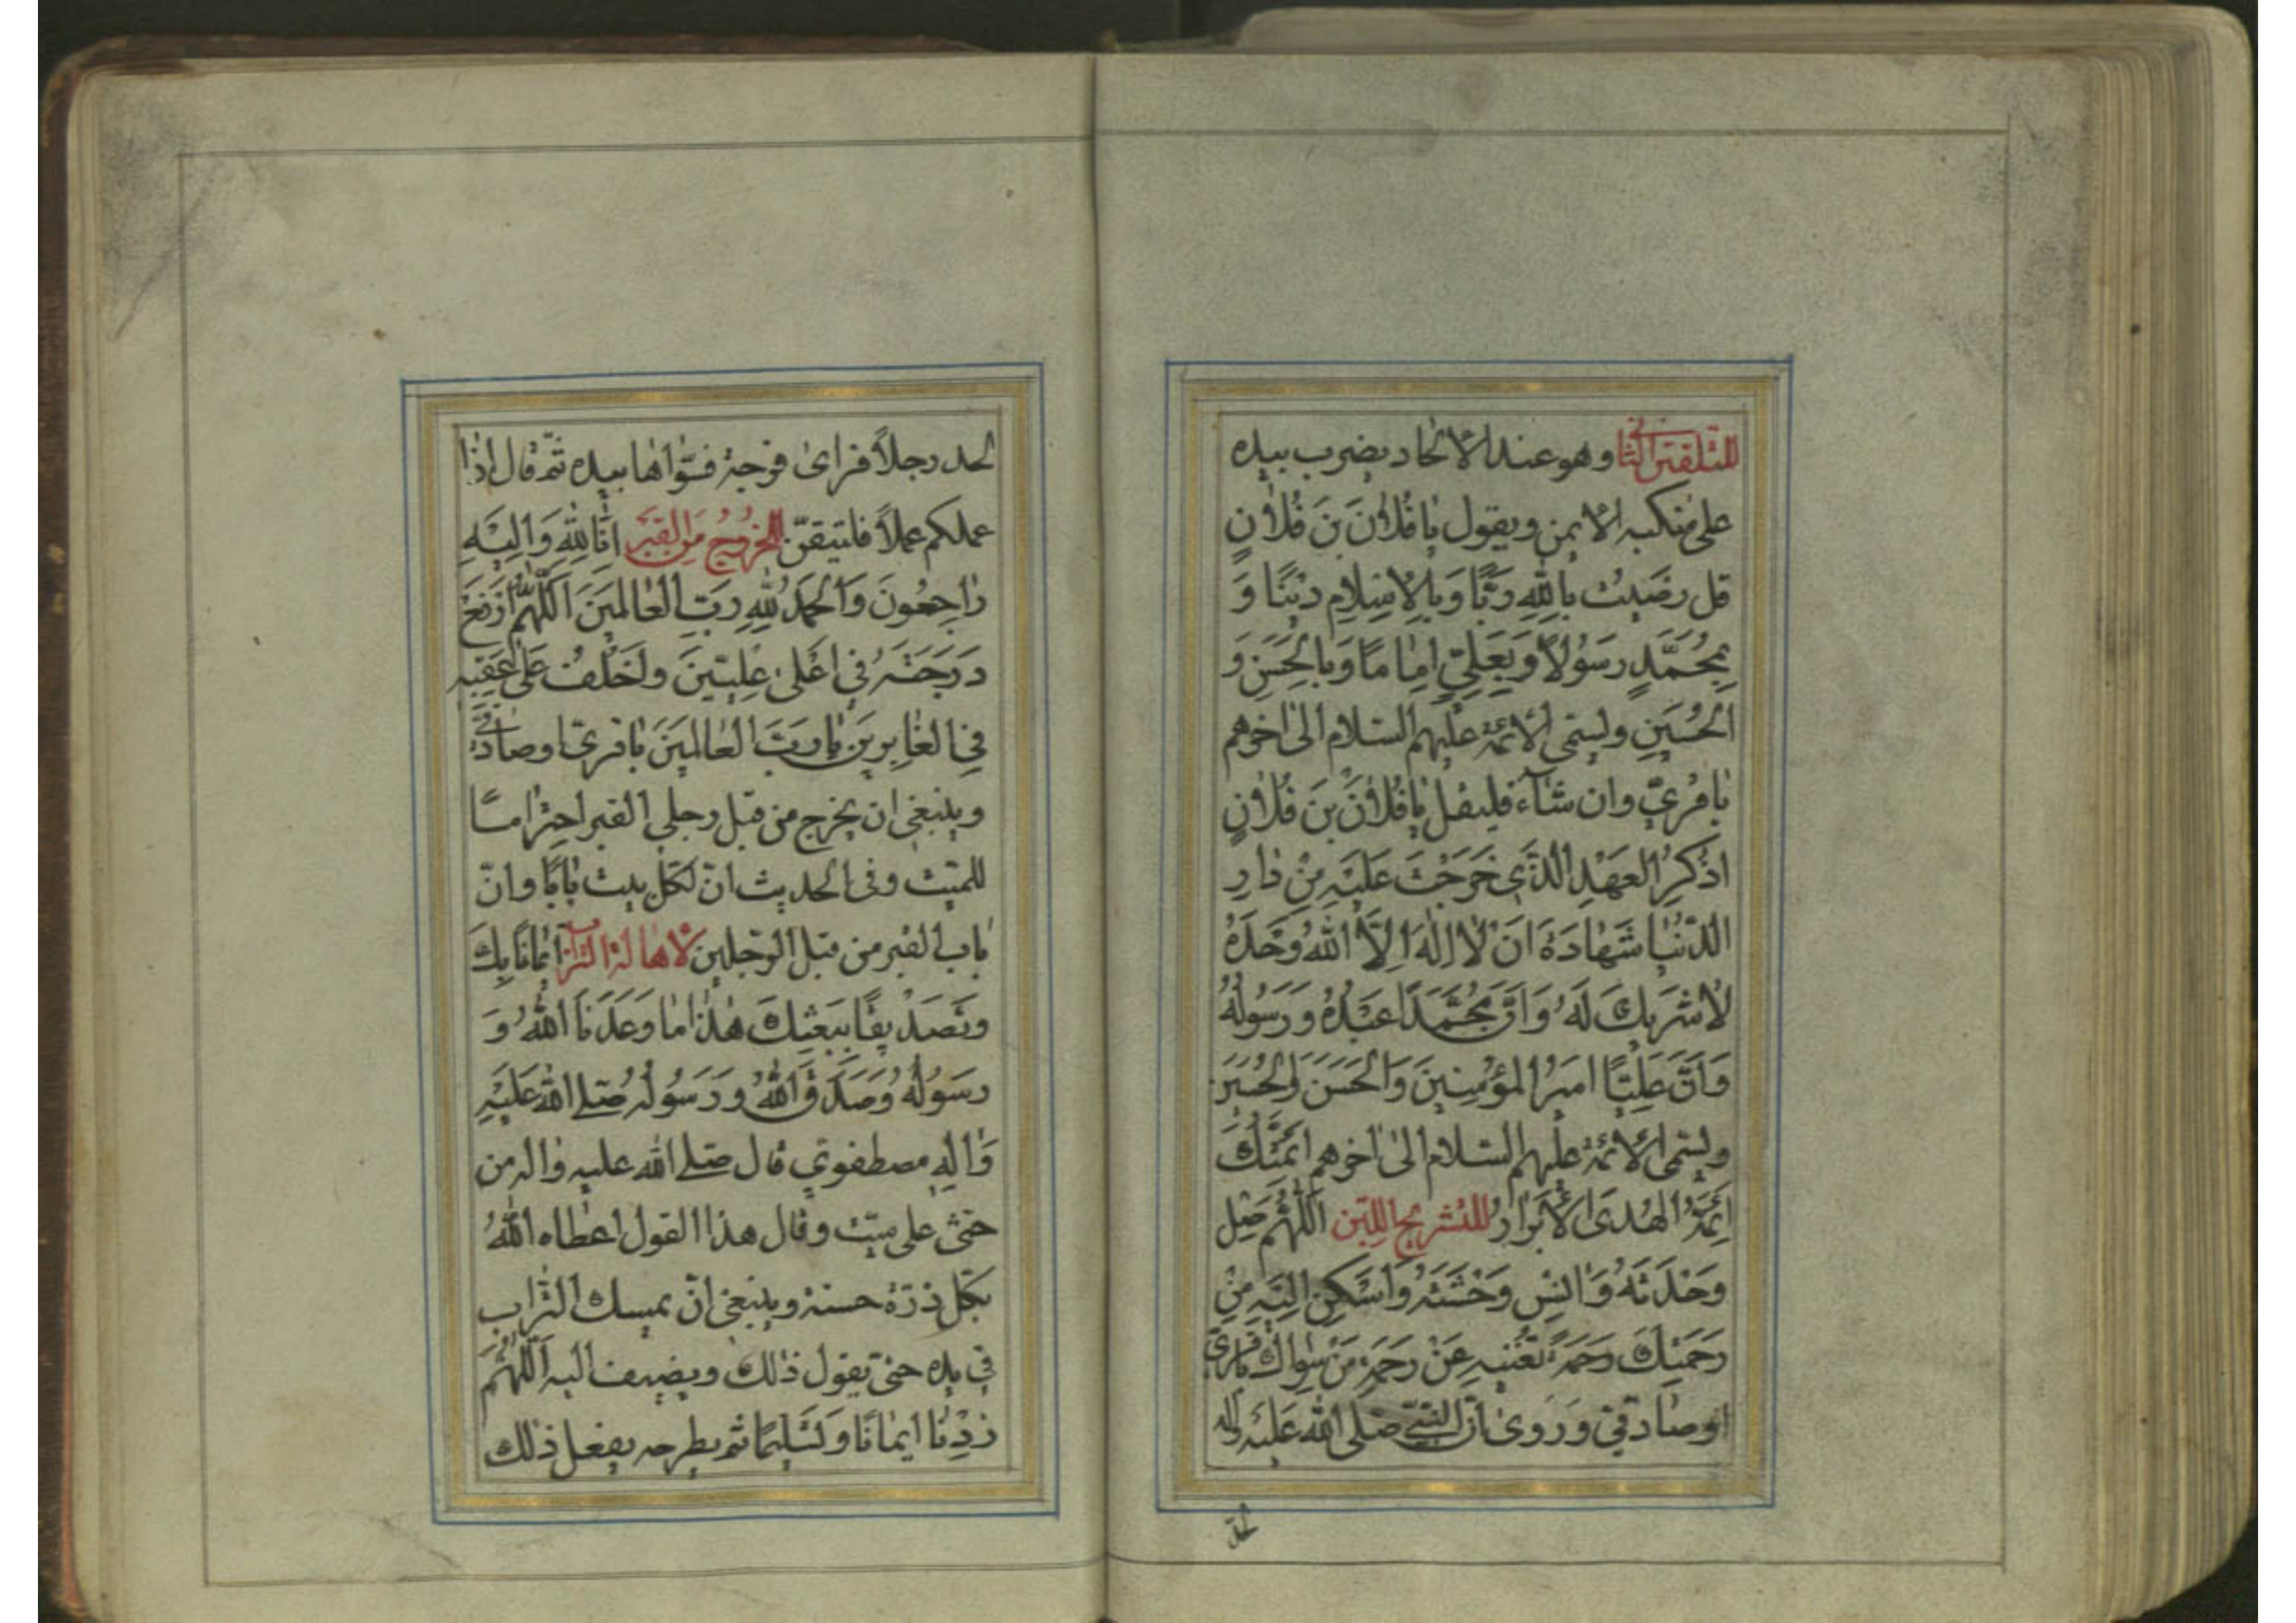 للتلقين الثانى وهو عند الالحاد يضرب بيده
على منكبه الايمن ويقول يا فُلانَ بنَ فُلانٍ
قل رضيت بِاللهِ رَبًّا وَبِالْاِسْلامِ دينًا وَ
بِمُحَمَّدٍ رَسُولًا وَبِعَلِيٍّ اِمامًا وَبِالْحَسَنِ وَ
الْحُسَيْنِ ويسمى الائمة عليهم السلام الى اخرهم
باقرىّ وان شاء فليقل يا فُلانَ بنَ فُلانٍ
اذْكُرِ العَهْدِ الَّذى خَرَجْتَ عَلَيْهِ مِنْ دارِ
الدُّنْيا شَهادَةَ اَنْ لا اِلهَ اِلَّا اللهُ وَحْدَهُ
لا شَريكَ لَهُ وَاَنَّ مُحَمَّدًا عَبْدُهُ وَرَسُولُهُ
وَاَنَّ عَلِيًّا اميرُ المؤْمِنينَ وَالْحَسَنَ وَالْحُسَيْنَ
ويسمى الائمة عليهم السلام الى اخرهم اَئِمَّتُكَ
اَئِمَّةُ الهُدَى الْاَبْرارُ للتشريج اللبن اَللّهُمَّ صِلْ
وَحْدَتَهُ وَانِسْ وَحْشَتَهُ وَاَسْكِنْ اِلَيْهِ مِنْ
رَحْمَتِكَ رَحْمَةً تُغْنيهِ عَنْ رَحْمَةِ مَنْ سِواكَ باقرىّ
اوصادقى وَرَوى انّ النبىّ صَلى اللهُ عَلَيْهِ واله
لحد
لحد رجلًا فراى فرجة فسوّاها بيده ثم قال اذا
عملكم عملًا فليتيقّن للخروج من القبر انّا لِلّهِ وَاِلَيْهِ
راجِعُونَ وَالْحَمْدُ لِلّهِ رَبِّ العالمينَ اَللّهُمَّ ارْفَعْ
دَرَجَتَهُ فى اعْلى عِلِيّينَ وَاخْلُفْ عَلى عَقِبِهِ
فِى الغابِرينَ يا رَبَّ العالمينَ باقرىّ اوصادقىّ
وينبغى ان يخرج من قبل رجلى القبر احترامًا
للميت وفى الحديث انّ لكل بيت بابًا وانّ
باب القبر من قبل الرّجلين لاهالة التراب ايمانًا بِكَ
وَتَصْديقًا بِبَعْثِكَ هذا ما وَعَدَنَا اللهُ وَ
رَسُولُهُ وَصَدَقَ اللهُ وَرَسُولُهُ صَلى اللهُ عَلَيْهِ
وَالِهِ مصطفوىّ قال صلى الله عليه واله من
حثى على ميّت وقال هذا القول اعطاه اللهُ
بكل ذرّة حسنة وينبغى انّ يمسك التراب
فى يده حتى يقول ذلك ويضيف اليه اَللّهُمَّ
زِدْنا ايمانًا وَتَسْليمًا ثم يطرحه يفعل ذلك